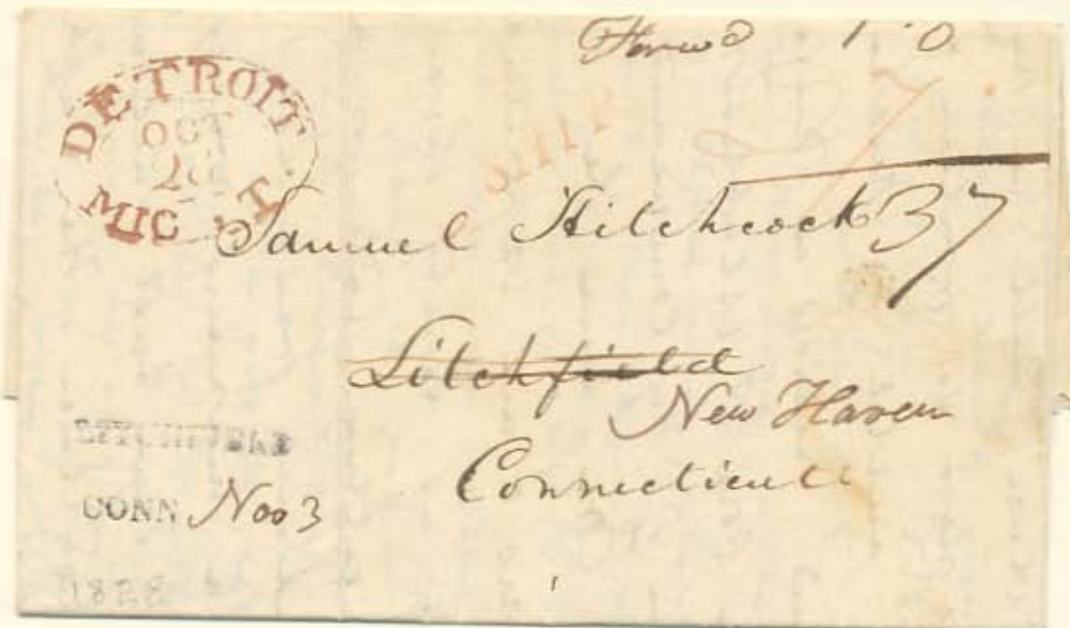 Forwd 10
DETROIT
OCT
28
MIC. T.
SHIP
27
Samuel Hitchcock 37
Litchfield
New Haven
Connecticutt
LITCHFIELD
CONN Nov 3
1828